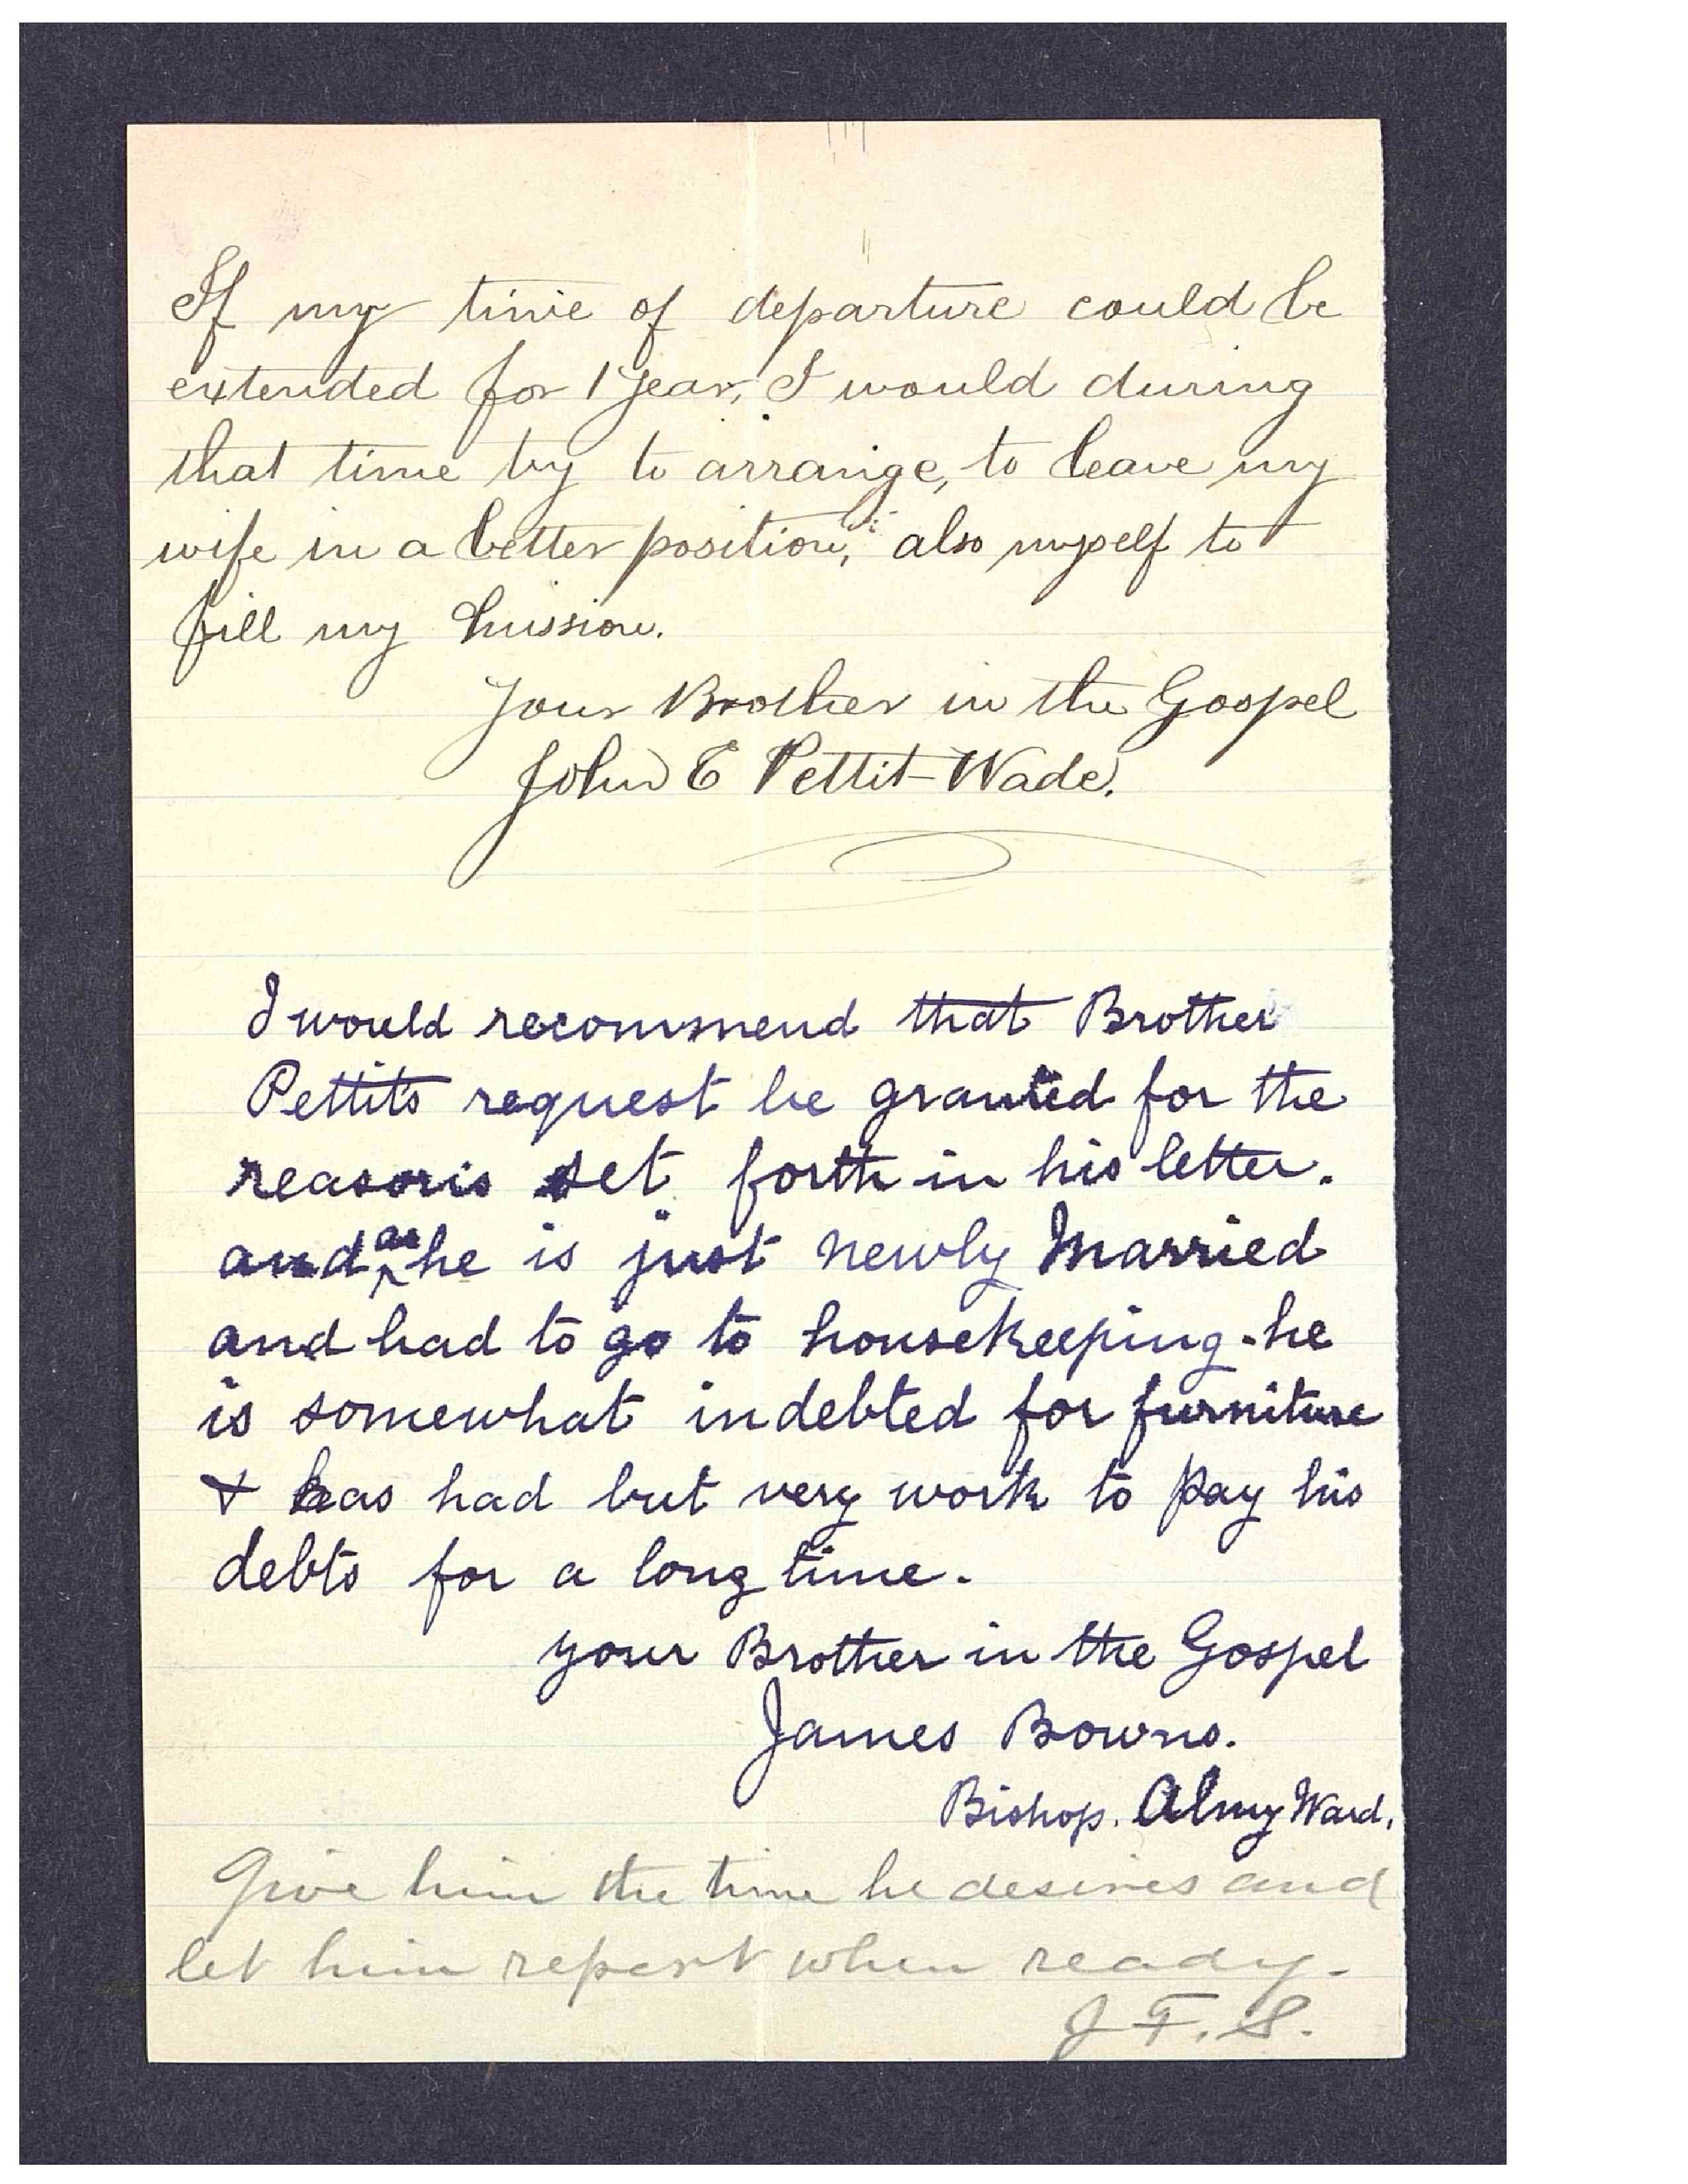 If my time of departure could be
extended for 1 year, I would during
that time try to arrange, to leave my
wife in a better position, also myself to
fill my mission.
Your Brother in the Gospel
John E Pettit-Wade.
I would recommend that Brother
Pettits request be granted for the
reasons set forth in his letter.
and as he is just newly Married
and had to go to housekeeping - he
is somewhat indebted for furniture
& has had but very work to pay his
debts for a long time.
your Brother in the Gospel
James Bowns.
Bishop. Almy Ward.
Give him the time he desires and
let him report when ready.
J F. S.